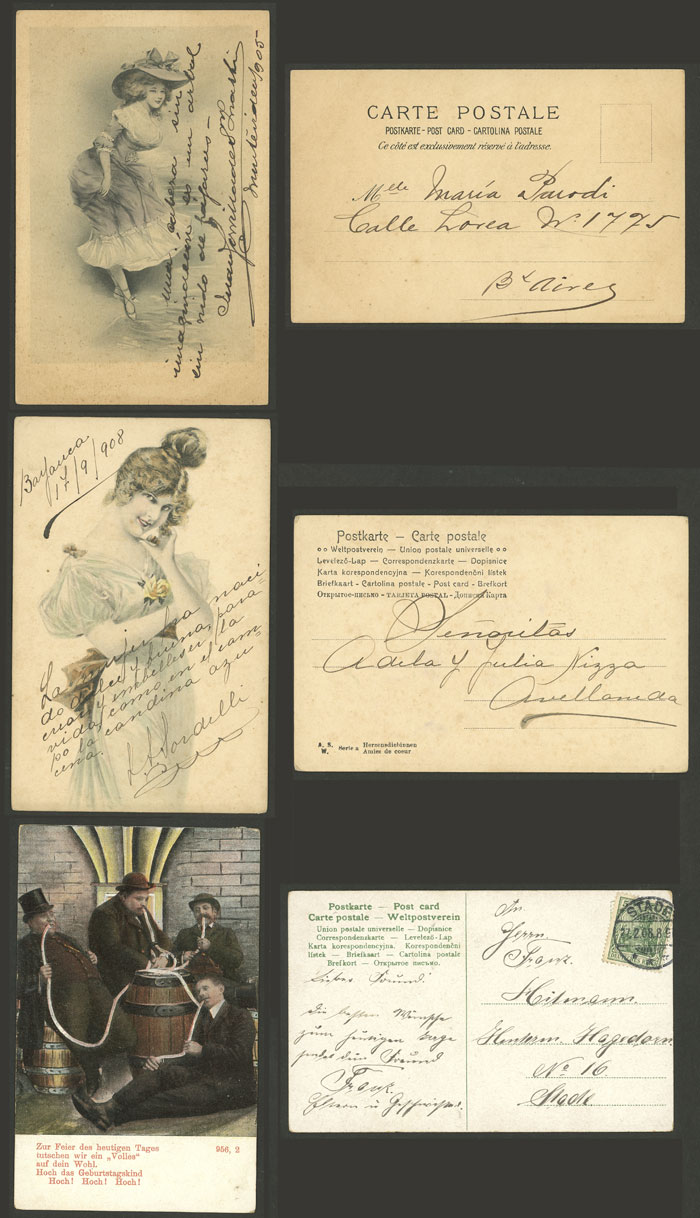 una cabeza sin
imaginación es un arbol
sin nido de pájaros—
Montevideo/905—
CARTE POSTALE
POSTKARTE - POST CARD - CARTOLINA POSTALE
Ce côté est exclusivement réservé à l'adresse.
Melle María Parodi
Calle Lorea No. 1775
Bs Aires
Barranca
17/9/908
La mujer ha naci
do dulce y buena, para
criar y embelleser la
vida, como en el cam-
po la candina azu-
cena.
Postkarte — Carte postale
Weltpostverein — Union postale universelle
Levelező-Lap — Correspondenzkarte — Dopisnice
Karta korespondencyjna — Korespondenční lístek
Briefkaart - Cartolina postale - Post card - Brefkort
Открытое-письмо - TARJETA POSTAL - Дописна Карта
Señoritas
Adela y Julia Nizza
Avellaneda
A. S. W. Serie 2 Herzensdiebinnen
Amies de coeur
Zur Feier des heutigen Tages
tutschen wir ein „Volles"
auf dein Wohl.
Hoch das Geburtstagskind
Hoch! Hoch! Hoch!
956, 2
Postkarte — Post card
Carte postale — Weltpostverein
Union postale universelle — Dopisnice
Correspondenzkarte — Levelező-Lap
Karta korespondencyjna. Korespondenční
listek — Briefkaart — Cartolina postale
Brefkort — Открытое письмо.
Lieber Freund!
Die besten Wünsche
zum heutigen Tage
sendet dein Freund
Frank
Eltern u Geschwister.
STADE
An
Herrn
Franz
Hitmann.
Hagedorn
No 16
Stade